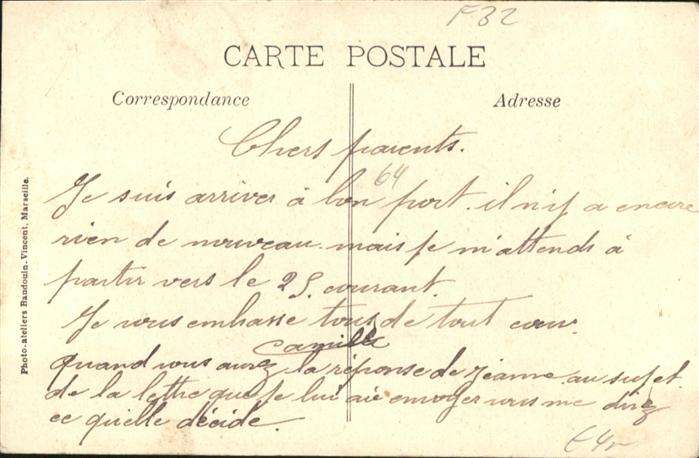 F32
CARTE POSTALE
Correspondance
Adresse
Chers parents.
64
Je suis arriver à bon port. il n'y a encore
rien de nouveau. mais je m'attends à
partir vers le 25. courant.
Je vous embrasse tous de tout cœur.
Camille
quand vous aurez la réponse de jeanne au sujet
de la lettre que je lui aie envoyer vous me direz
ce qu'elle décide.
Photo-ateliers Baudouin-Vincent, Marseille.